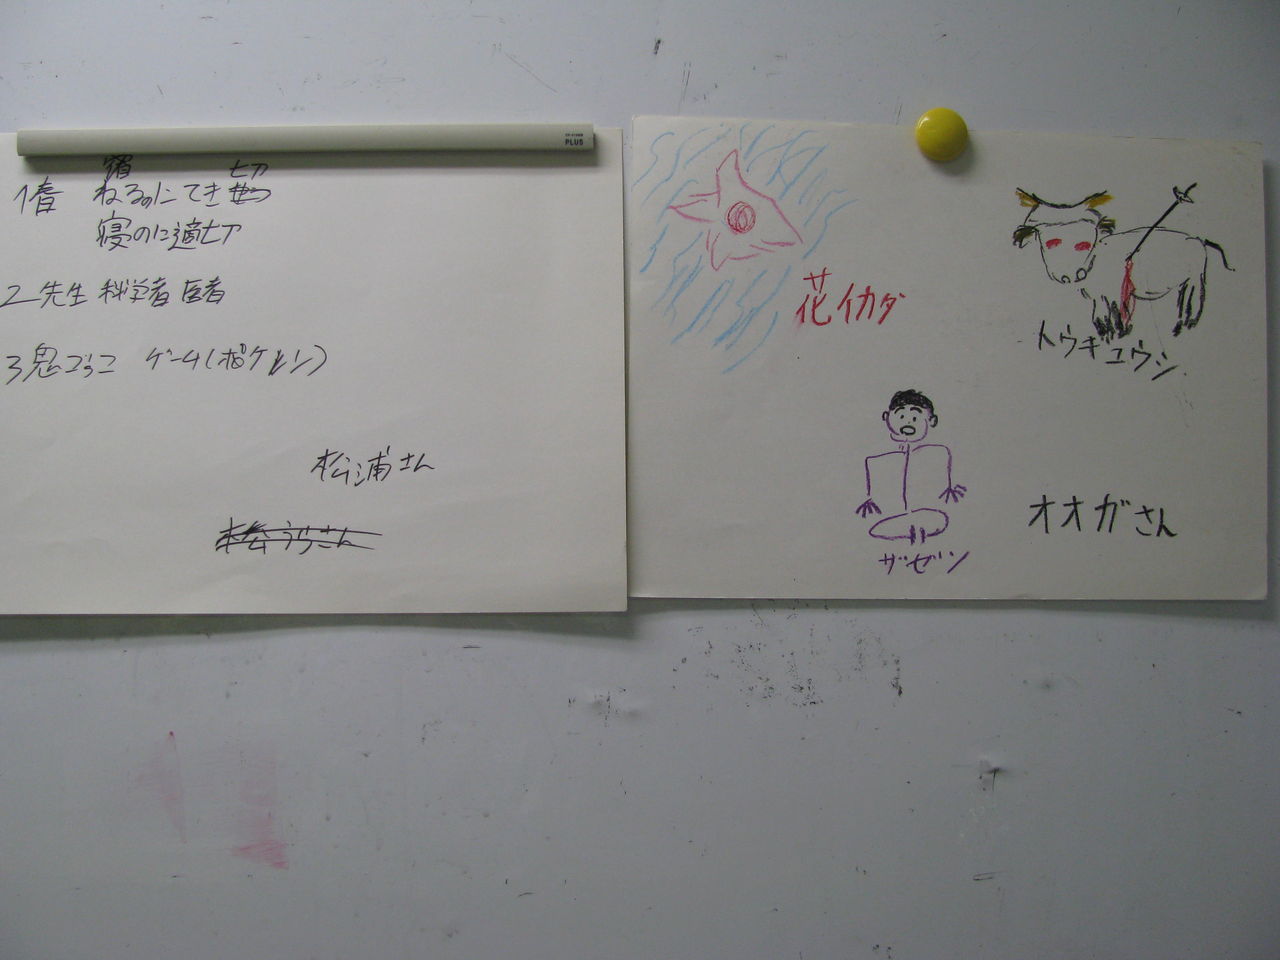 PLUS
1春 ねるのにてき切
寝のに適切
2 先生 科学者 医者
3 鬼ごっこ ゲーム(ポケモン)
松浦さん
松うらさん
花イカダ
トウギュウシ
ザゼン
オオガさん